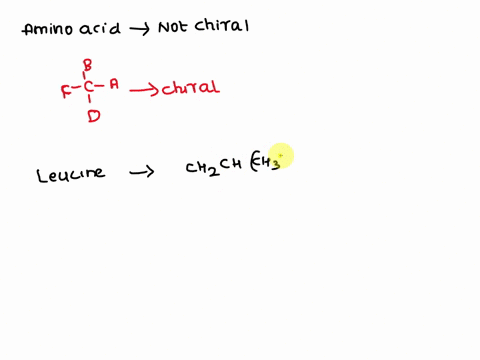 Amino acid → Not chiral
B
F-C-A → chiral
D
Leucine → CH2CH(CH3